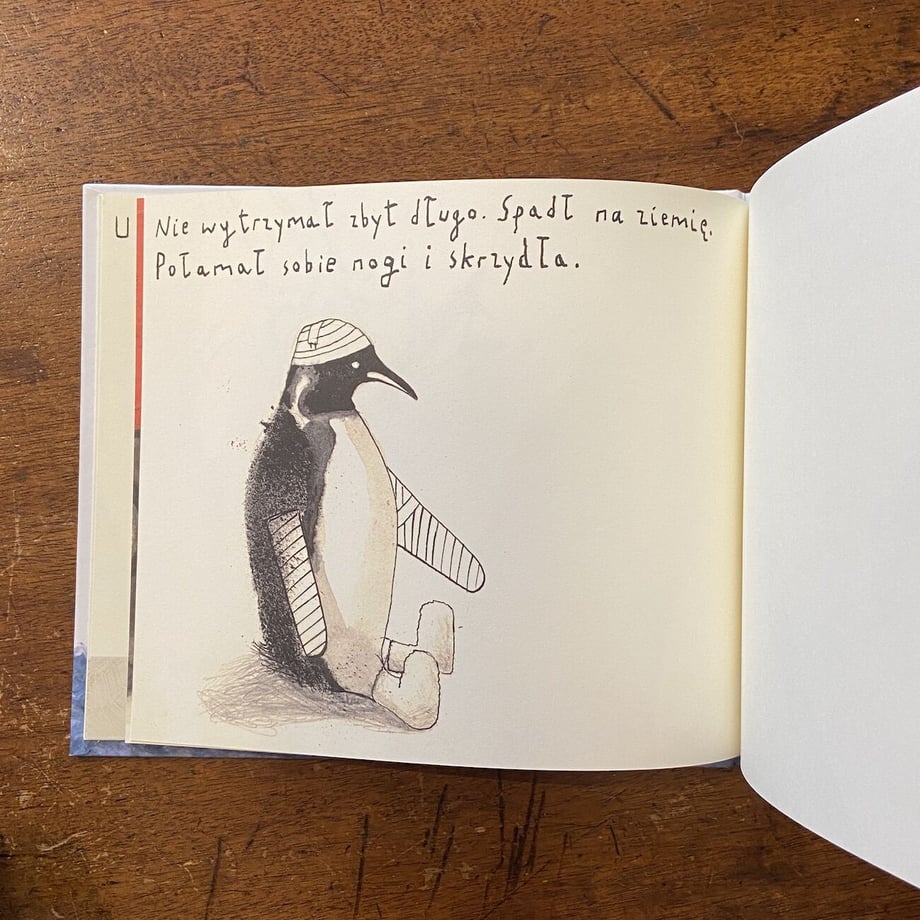 U
Nie wytrzymał zbyt długo. Spadł na ziemię.
Połamał sobie nogi i skrzydła.